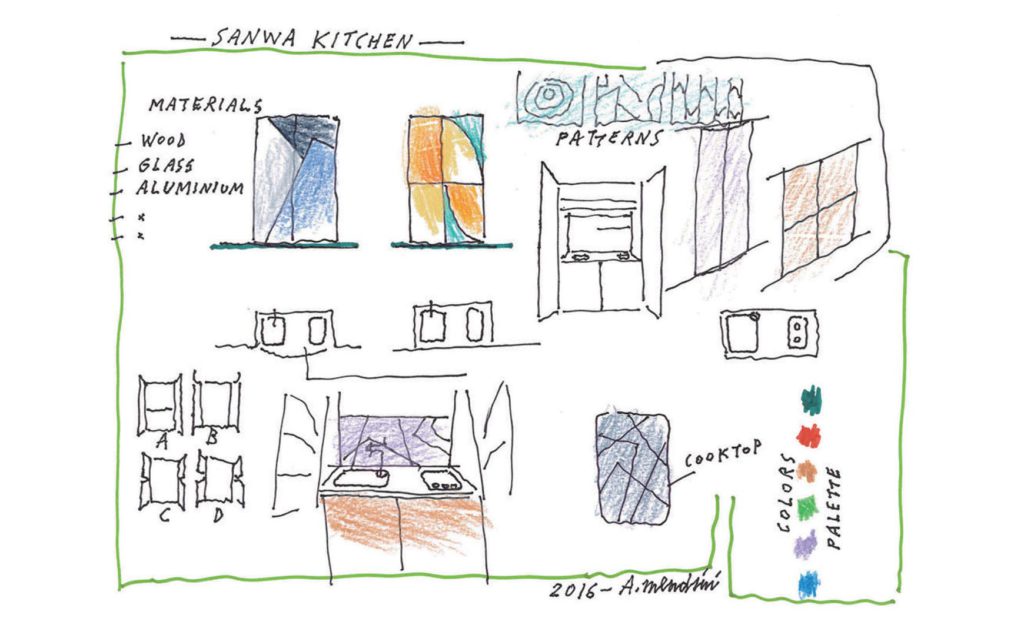 — SANWA KITCHEN —
MATERIALS
WOOD
GLASS
ALUMINIUM
x
x
PATTERNS
A
B
C
D
COOKTOP
COLORS
PALETTE
2016 - A. Mendini